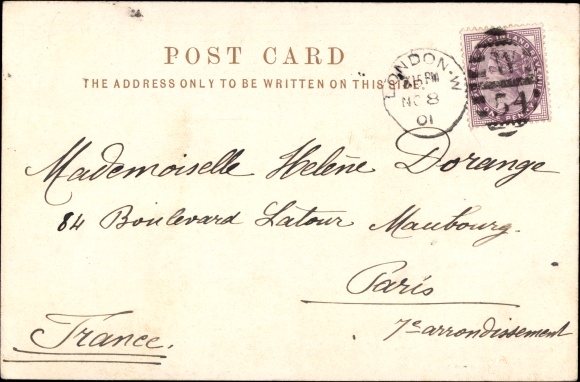 POST CARD
THE ADDRESS ONLY TO BE WRITTEN ON THIS SIDE.
LONDON·W
NO 8
01
W
54
Mademoiselle Helène Dorange
84 Boulevard Latour Maubourg.
Paris
7e arrondissement
France.